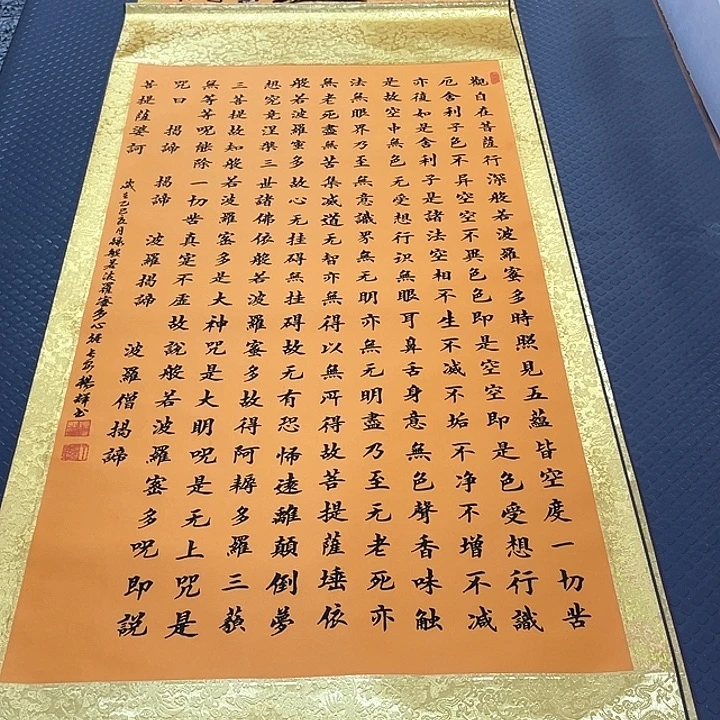 觀自在菩薩行深般若波羅蜜多時照見五蘊皆空度一切苦
厄舍利子色不异空空不異色色即是空空即是色受想行識
亦復如是舍利子是諸法空相不生不减不垢不净不增不减
是故空中無色无受想行识無眼耳鼻舌身意無色聲香味触
法無眼界乃至無意識界無无明亦無无明盡乃至无老死亦
無老死盡無苦集减道无智亦無得以無所得故菩提薩埵依
般若波羅蜜多故心无挂碍無挂碍故无有恐怖遠離顛倒夢
想究竟涅槃三世諸佛依般若波羅蜜多故得阿耨多羅三藐
三菩提故知般若波羅蜜多是大神咒是大明呪是无上咒是
無等等呪能除一切苦真实不虚故說般若波羅蜜多呪即說
咒曰 揭諦 揭諦 波羅揭諦 波羅僧揭諦
菩提薩婆訶
歲在乙巳夏月録般若波羅蜜多心經 楊輝書